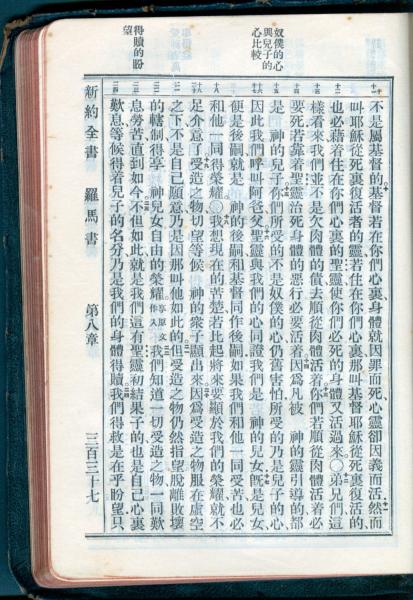 奴僕的心
與兒子的
心比較
得贖的盼
望
不是屬基督的基督若在你們心裏身體就因罪而死心靈卻因義而活然而
叫耶穌從死裏復活者的靈若住在你們心裏那叫基督耶穌從死裏復活的
也必藉着住在你們心裏的聖靈使你們必死的身體又活過來〇弟兄們這
樣看來我們並不是欠肉體的債去順從肉體活着你們若順從肉體活着必
要死若靠着聖靈治死身體的惡行必要活着因爲凡被　神的靈引導的都
是　神的兒子你們所受的不是奴僕的心仍舊害怕所受的乃是兒子的心
因此我們呼叫阿爸父聖靈與我們的心同證我們是　神的兒女旣是兒女
便是後嗣就是　神的後嗣和基督同作後嗣如果我們和他一同受苦也必
和他一同得榮耀〇我想現在的苦楚若比起將來要顯於我們的榮耀就不
足介意了受造之物切望等候　神的衆子顯出來因爲受造之物服在虛空
之下不是自己願意乃是因那叫他如此的但受造之物仍然指望脫離敗壞
的轄制得享　神兒女自由的榮耀享原文作入我們知道一切受造之物一同歎
息勞苦直到如今不但如此就是我們這有聖靈初結果子的也是自己心裏
歎息等候得着兒子的名分乃是我們的身體得贖我們得救是在乎盼望只
新約全書　羅馬書　第八章　三百三十七